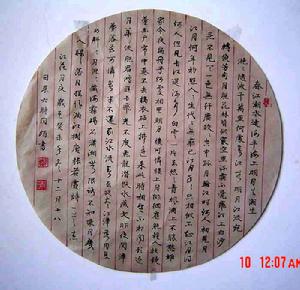 春江潮水連海平海上明月共潮生
灩灩隨波千萬里何處春江無月明江流宛
轉繞芳甸月照花林皆似霰空裏流霜不覺飛汀上白沙
看不見江天一色無纖塵皎皎空中孤月輪江畔何人初見月
江月何年初照人人生代代無窮已江月年年只相似不知江月待
何人但見長江送流水白雲一片去悠悠青楓浦上不勝愁誰
家今夜扁舟子何處相思明月樓可憐樓上月徘徊應照離人妝鏡
臺玉戶簾中卷不去搗衣砧上拂還來此時相望不相聞願逐
月華流照君鴻雁長飛光不度魚龍潛躍水成文昨夜閒潭
夢落花可憐春半不還家江水流春去欲盡江潭落月復西
斜斜月沉沉藏海霧碣石瀟湘無限路不知乘月幾
人歸落月搖情滿江樹張若虛詩春
江花月夜十二月十八
日書
10 12:07AM